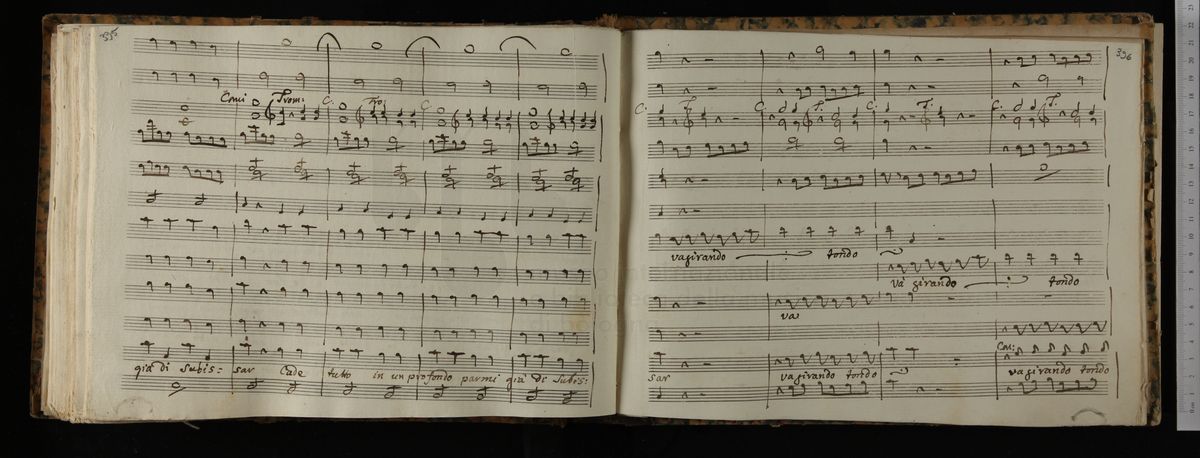 335.
Corni Trom: C. Tro: C.
già di Subis: sar Cade tutto in un profondo parmi già di Subis:
336
C. T. C. T. C. T. C. T.
va girando tondo
va girando tondo
va
Cor:
sar va girando tondo va girando tondo